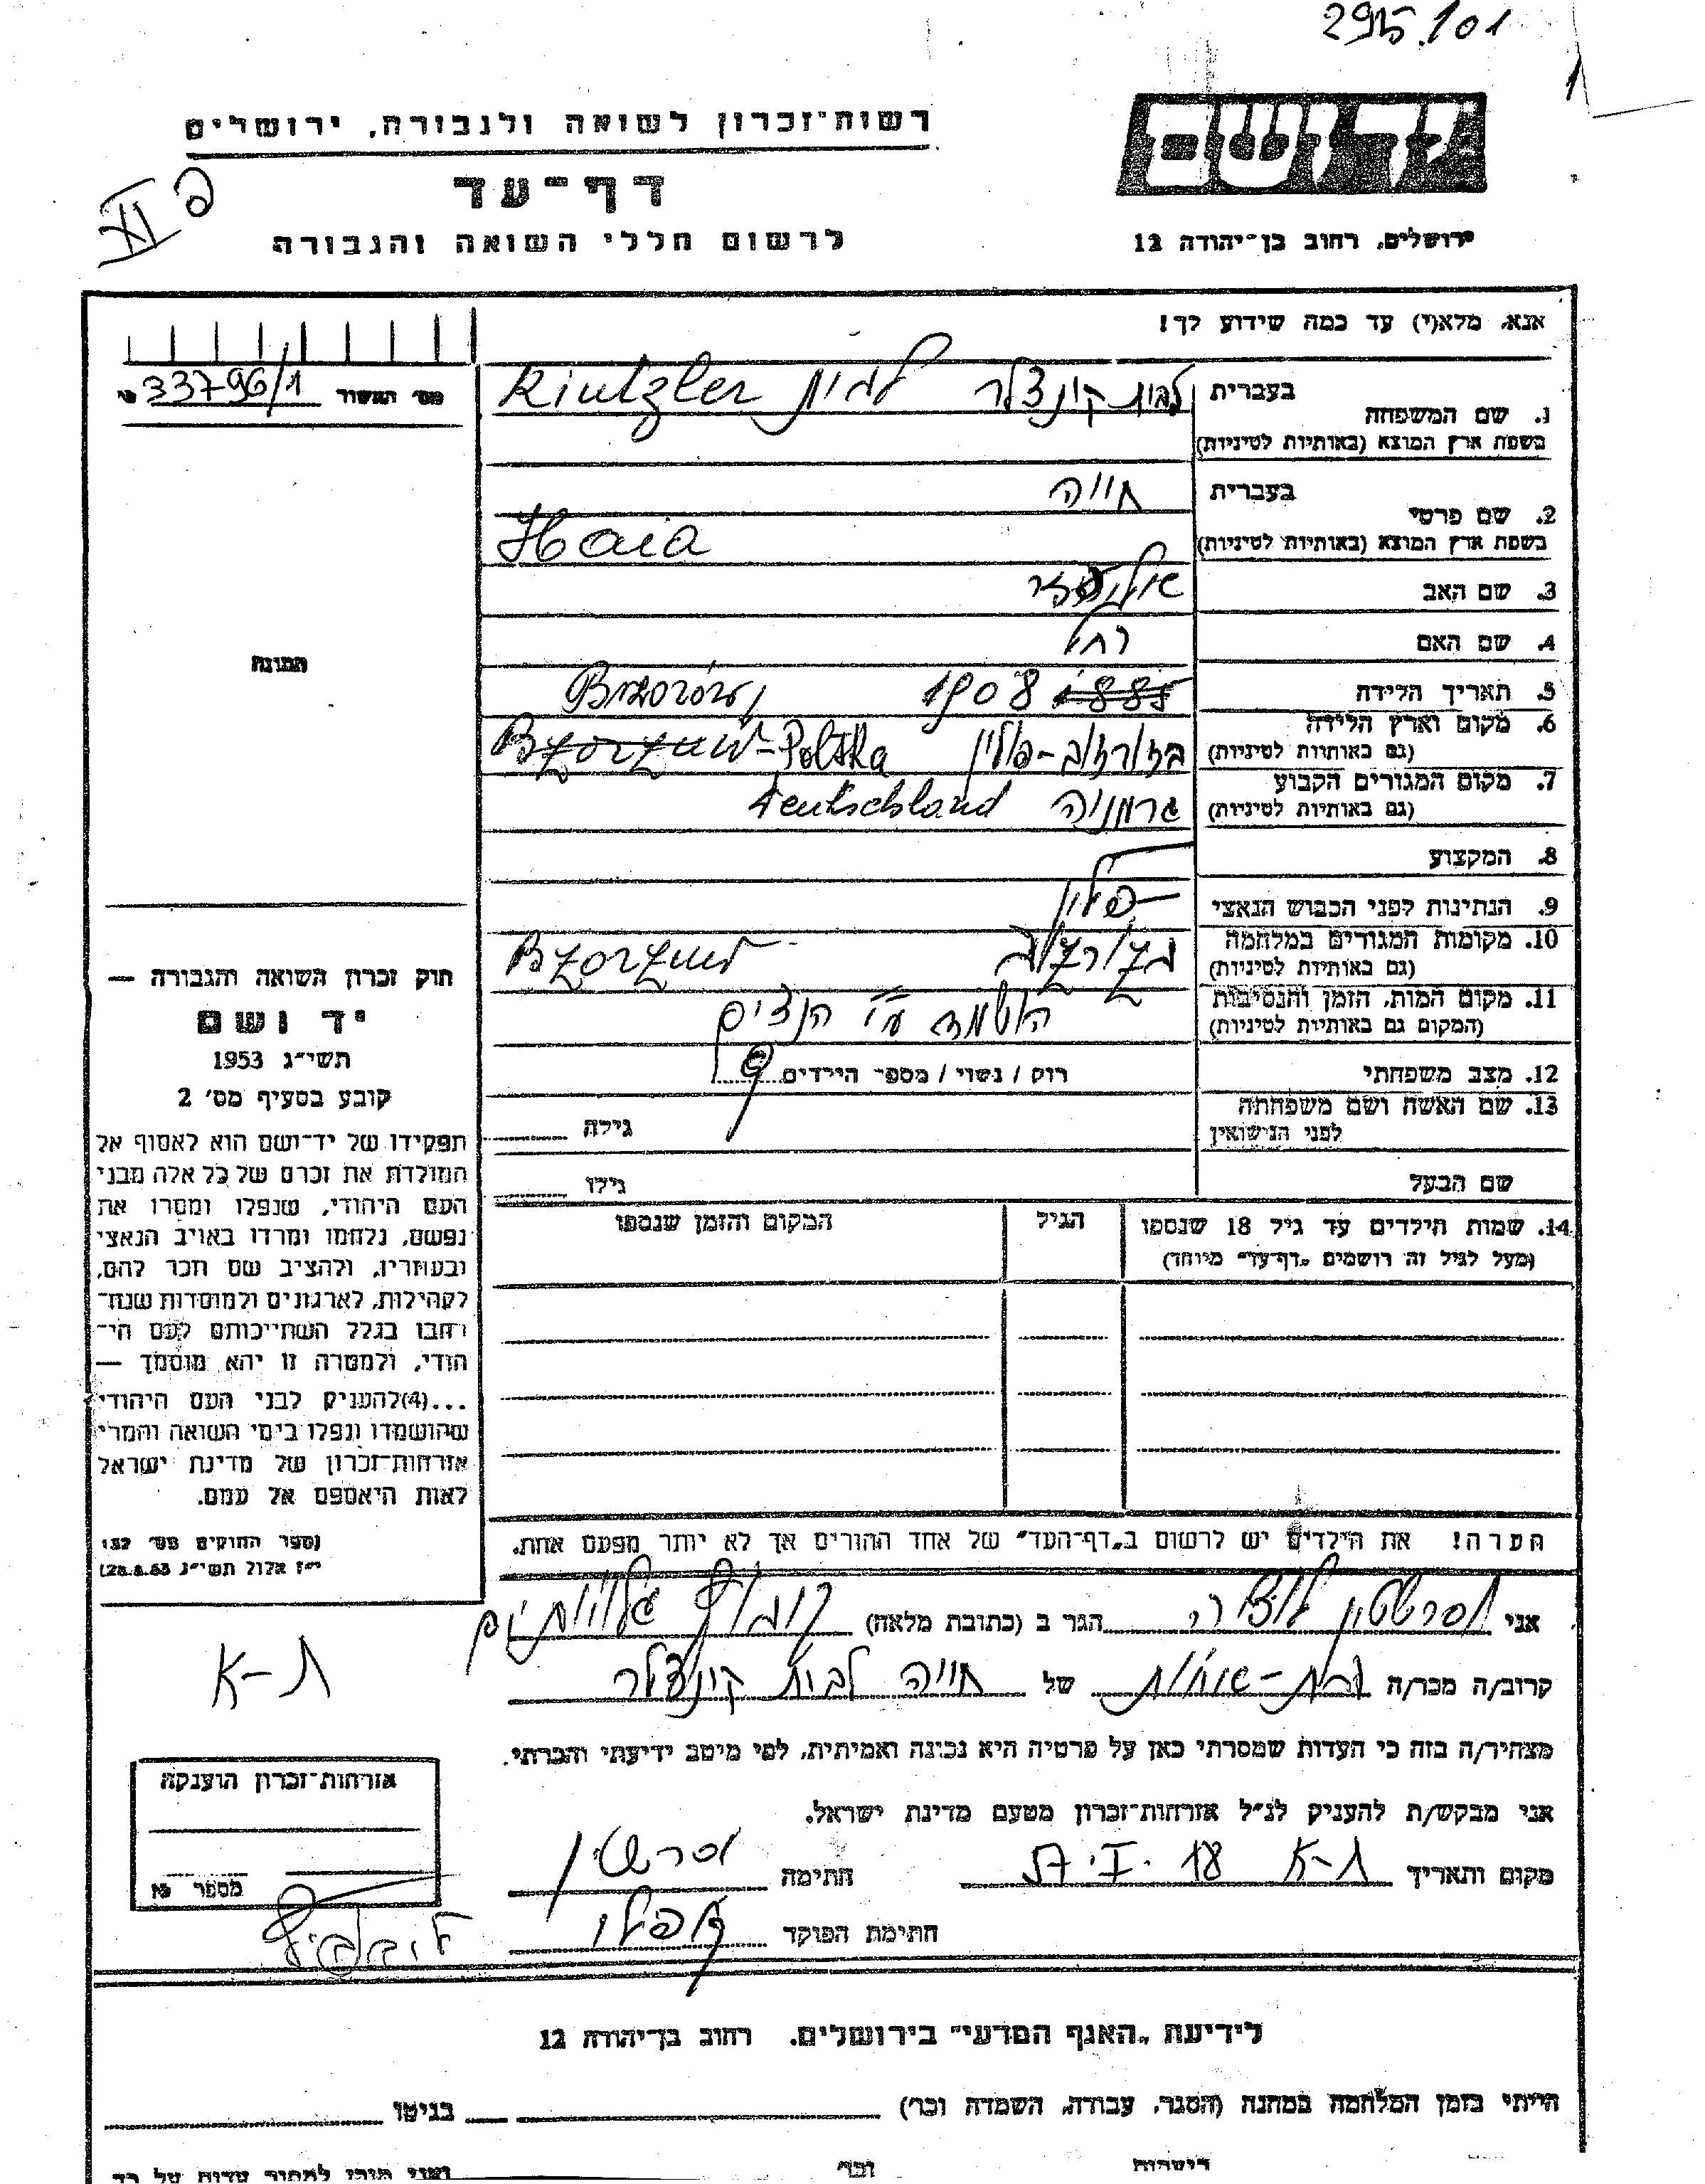 295.101
רשות־זכרון לשואה ולגבורה, ירושלים
דף־עד
לרשום חללי השואה והגבורה
ירושלים, רחוב בן־יהודה 12
אנא, מלא(י) עד כמה שידוע לך!
מס׳ האשור 33796/1
1. שם המשפחה בעברית לבית קינצלר Kintzler
בשפת ארץ המוצא (באותיות לטיניות)
2. שם פרטי בעברית חייה
בשפת ארץ המוצא (באותיות לטיניות) Haia
3. שם האב
4. שם האם רחל
5. תאריך הלידה 1885 1908 Brzozów
6. מקום וארץ הלידה
(גם באותיות לטיניות) פולין - Polska
7. מקום המגורים הקבוע
(גם באותיות לטיניות) גרמניה Deutschland
8. המקצוע
9. הנתינות לפני הכבוש הנאצי פולין
10. מקומות המגורים במלחמה
(גם באותיות לטיניות) Bzorzuw
11. מקום המות, הזמן והנסיבות
(המקום גם באותיות לטיניות) הושמדה ע״י הנצים
12. מצב משפחתי רוק / נשוי / מספר הילדים
13. שם האשה ושם משפחתה
לפני הנישואין גילה
שם הבעל גילו
14. שמות הילדים עד גיל 18 שנספו הגיל המקום והזמן שנספו
(מעל לגיל זה רושמים „דף־עד״ מיוחד)
תמונה
חוק זכרון השואה והגבורה —
יד ושם
תשי״ג 1953
קובע בסעיף מס׳ 2
תפקידו של יד־ושם הוא לאסוף אל
המולדת את זכרם של כל אלה מבני
העם היהודי, שנפלו ומסרו את
נפשם, נלחמו ומרדו באויב הנאצי
ובעוזריו, ולהציב שם וזכר להם,
לקהילות, לארגונים ולמוסדות שנח־
רבו בגלל השתייכותם לעם הי־
הודי, ולמטרה זו יהא מוסמך —
...(4)להעניק לבני העם היהודי
שהושמדו ונפלו בימי השואה והמרי
אזרחות־זכרון של מדינת ישראל
לאות היאספם אל עמם.
(ספר החוקים מס׳ 132
י״ז אלול תשי״ג 28.8.53)
הערה! את הילדים יש לרשום ב„דף־העד״ של אחד ההורים אך לא יותר מפעם אחת.
אני הגר ב (כתובת מלאה)
קרוב/ה מכר/ה בת-אחות של חייה לבית קינצלר
מצהיר/ה בזה כי העדות שמסרתי כאן על פרטיה היא נכונה ואמיתית, לפי מיטב ידיעתי והכרתי.
אני מבקש/ת להעניק לנ״ל אזרחות־זכרון מטעם מדינת ישראל.
מקום ותאריך ת-א חתימה
חתימת הפוקד
ת-א
אזרחות־זכרון הוענקה
מספר №
לידיעת „האגף המדעי״ בירושלים. רחוב בן־יהודה 12
הייתי בזמן המלחמה במחנה (הסגר, עבודה, השמדה וכר׳) בגיטו